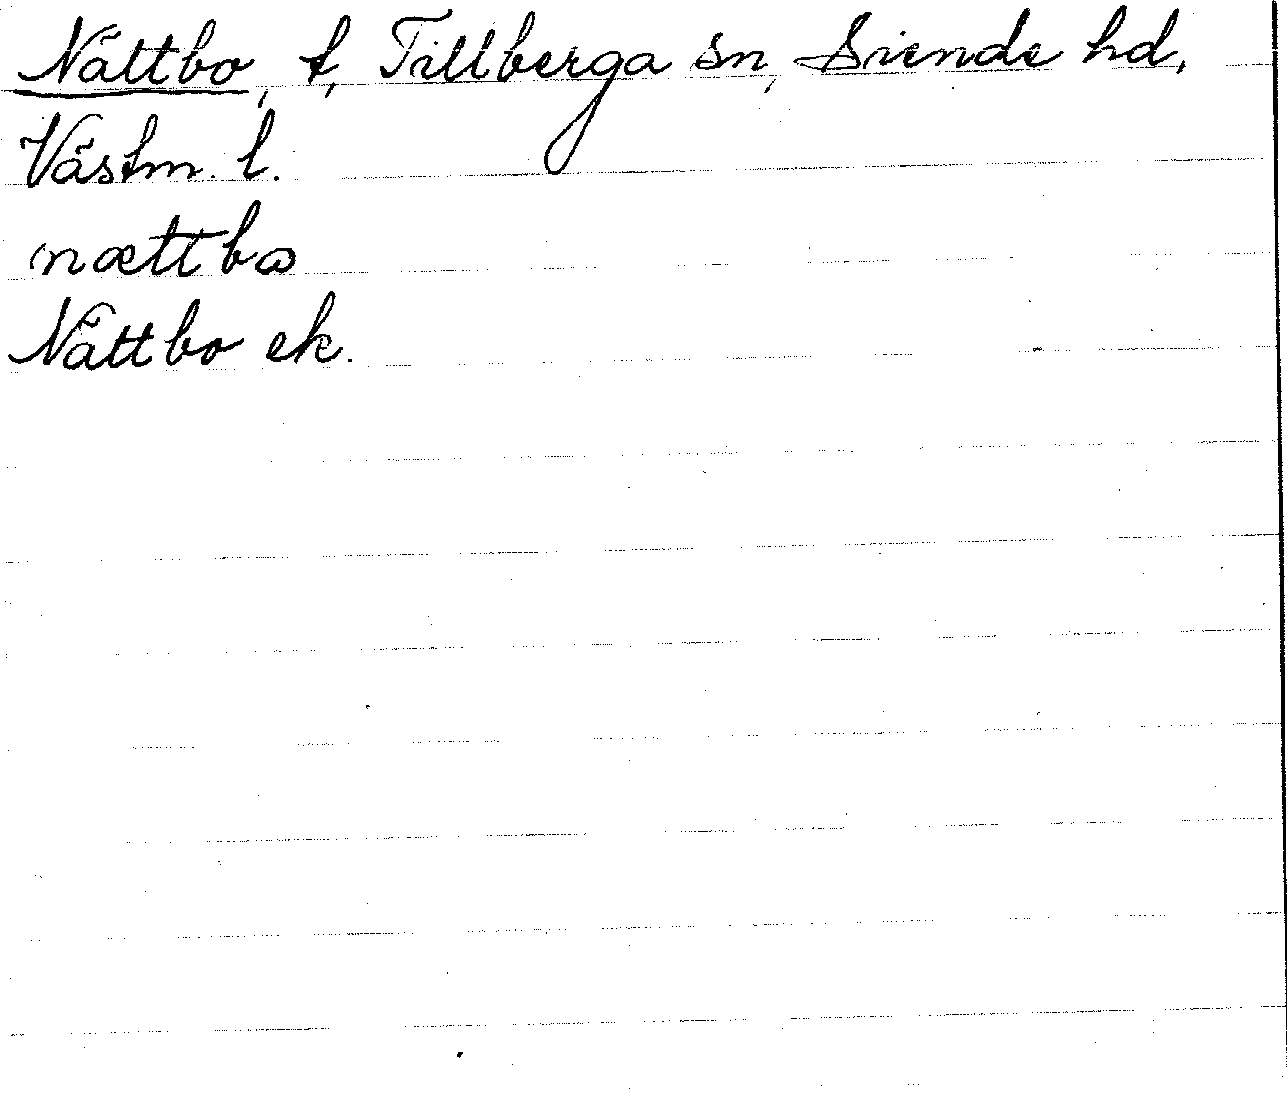 Nättbo, t, Tillberga sn, Siende hd,
Västm. l.
nættbɷ
Nättbo ek.